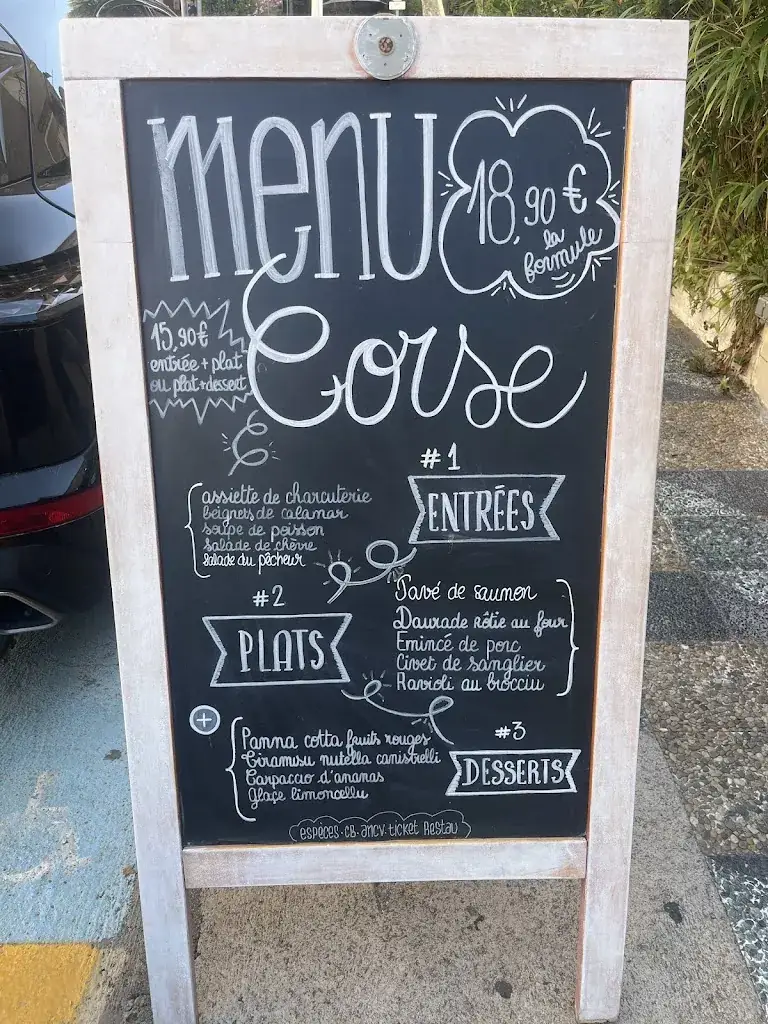 menu
18,90 €
la
formule
Corse
15,90€
entrée + plat
ou plat+dessert
#1
ENTRÉES
assiette de charcuterie
beignets de calamar
soupe de poisson
salade de chèvre
salade du pêcheur
#2
PLATS
Pavé de saumon
Daurade rôtie au four
Emincé de porc
Civet de sanglier
Ravioli au brocciu
+
#3
DESSERTS
Panna cotta fruits rouges
Tiramisu nutella canistrelli
Carpaccio d'ananas
Glaçe limoncellu
espèces · CB · ancv · ticket Restau